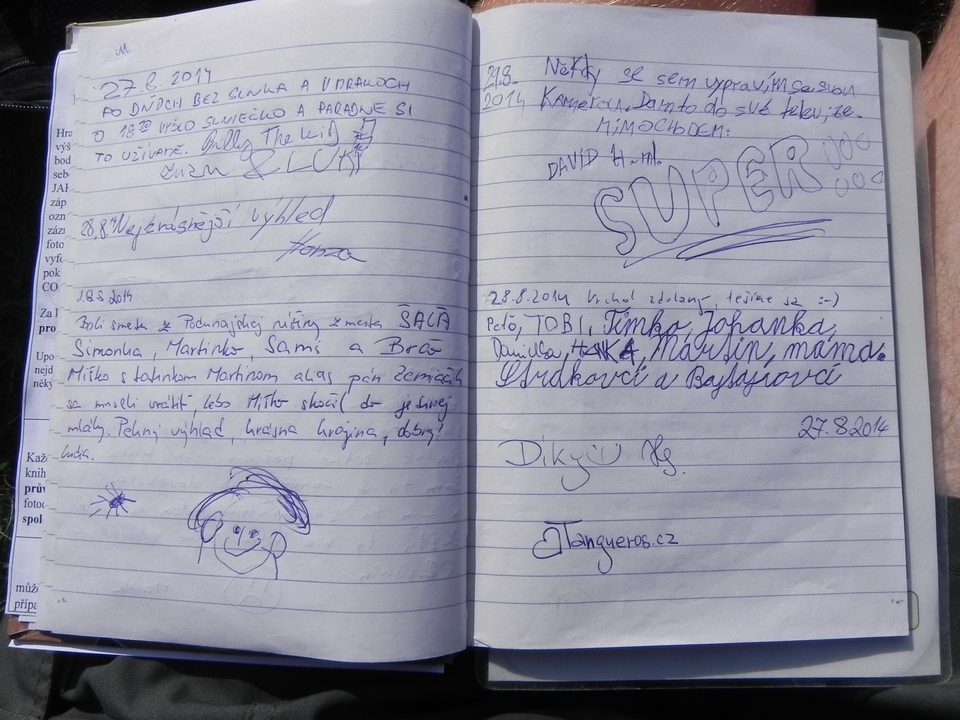 27.8. 2014
PO DŇOCH BEZ SLNKA A V MRAKOCH
O 18 VYŠLO SLNIEČKO A PARÁDNE SI
TO UŽÍVAME. Billy The Kid
& LUKI
28.8 Nejkrásnější výhled
Honza
28.8 2014
Boli sme tu z Podunajskej nížiny z mesta ŠAĽA
Simonka, Martinko, Samš a Braňo
Miško s tatinkom Martinom alias pán Zemiačik
sa museli vrátiť, lebo Miško skočil do jednej
mláky. Pekný výhľad, krásna krajina, dobrý
ľudia.
29.8. Někdy se sem vypravím se svou
2014 Kamerou. Dám to do své televize.
MIMOCHODEM:
DAVID H.ml.
SUPER
28.8.2014 Vrchol zdolaný, tešíme sa :-)
Peťo, TOBI, Timko, Johanka,
Danielka, HANKA, Martin, mama.
Strákovci a Bajtajovci
27.8.2014
Díky
Tangueros.cz
Hra
výš
bod
seb
JAK
záp
ozn
zázn
foto
vyfo
pok
CO
Za l
pro
Upo
nejd
něky
Kaž
knih
prův
fotoc
spol
může
přípa